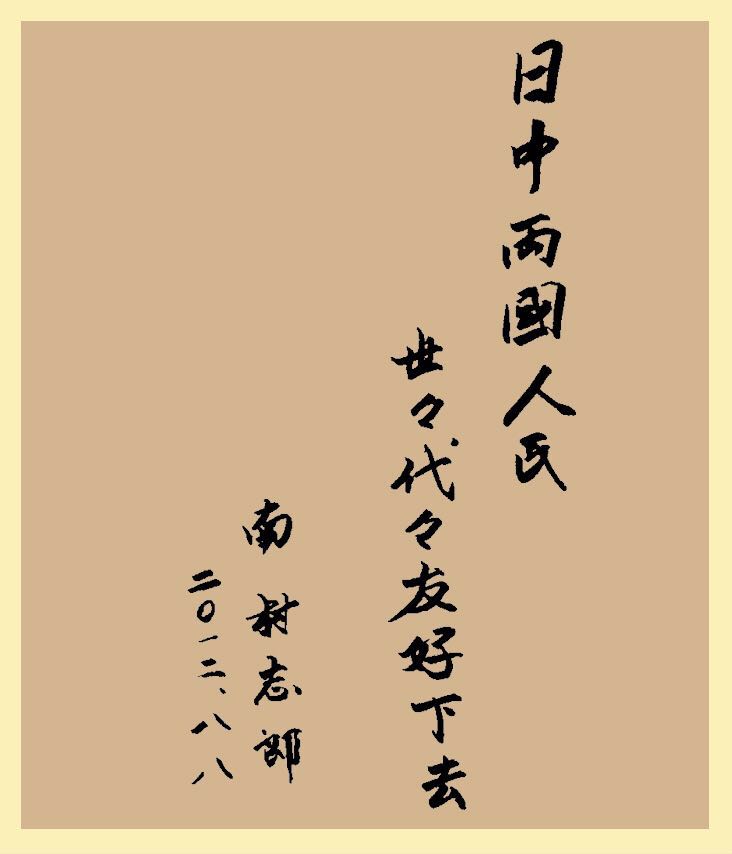 日中両國人民
世々代々友好下去
南村志郎
二〇一二、八八